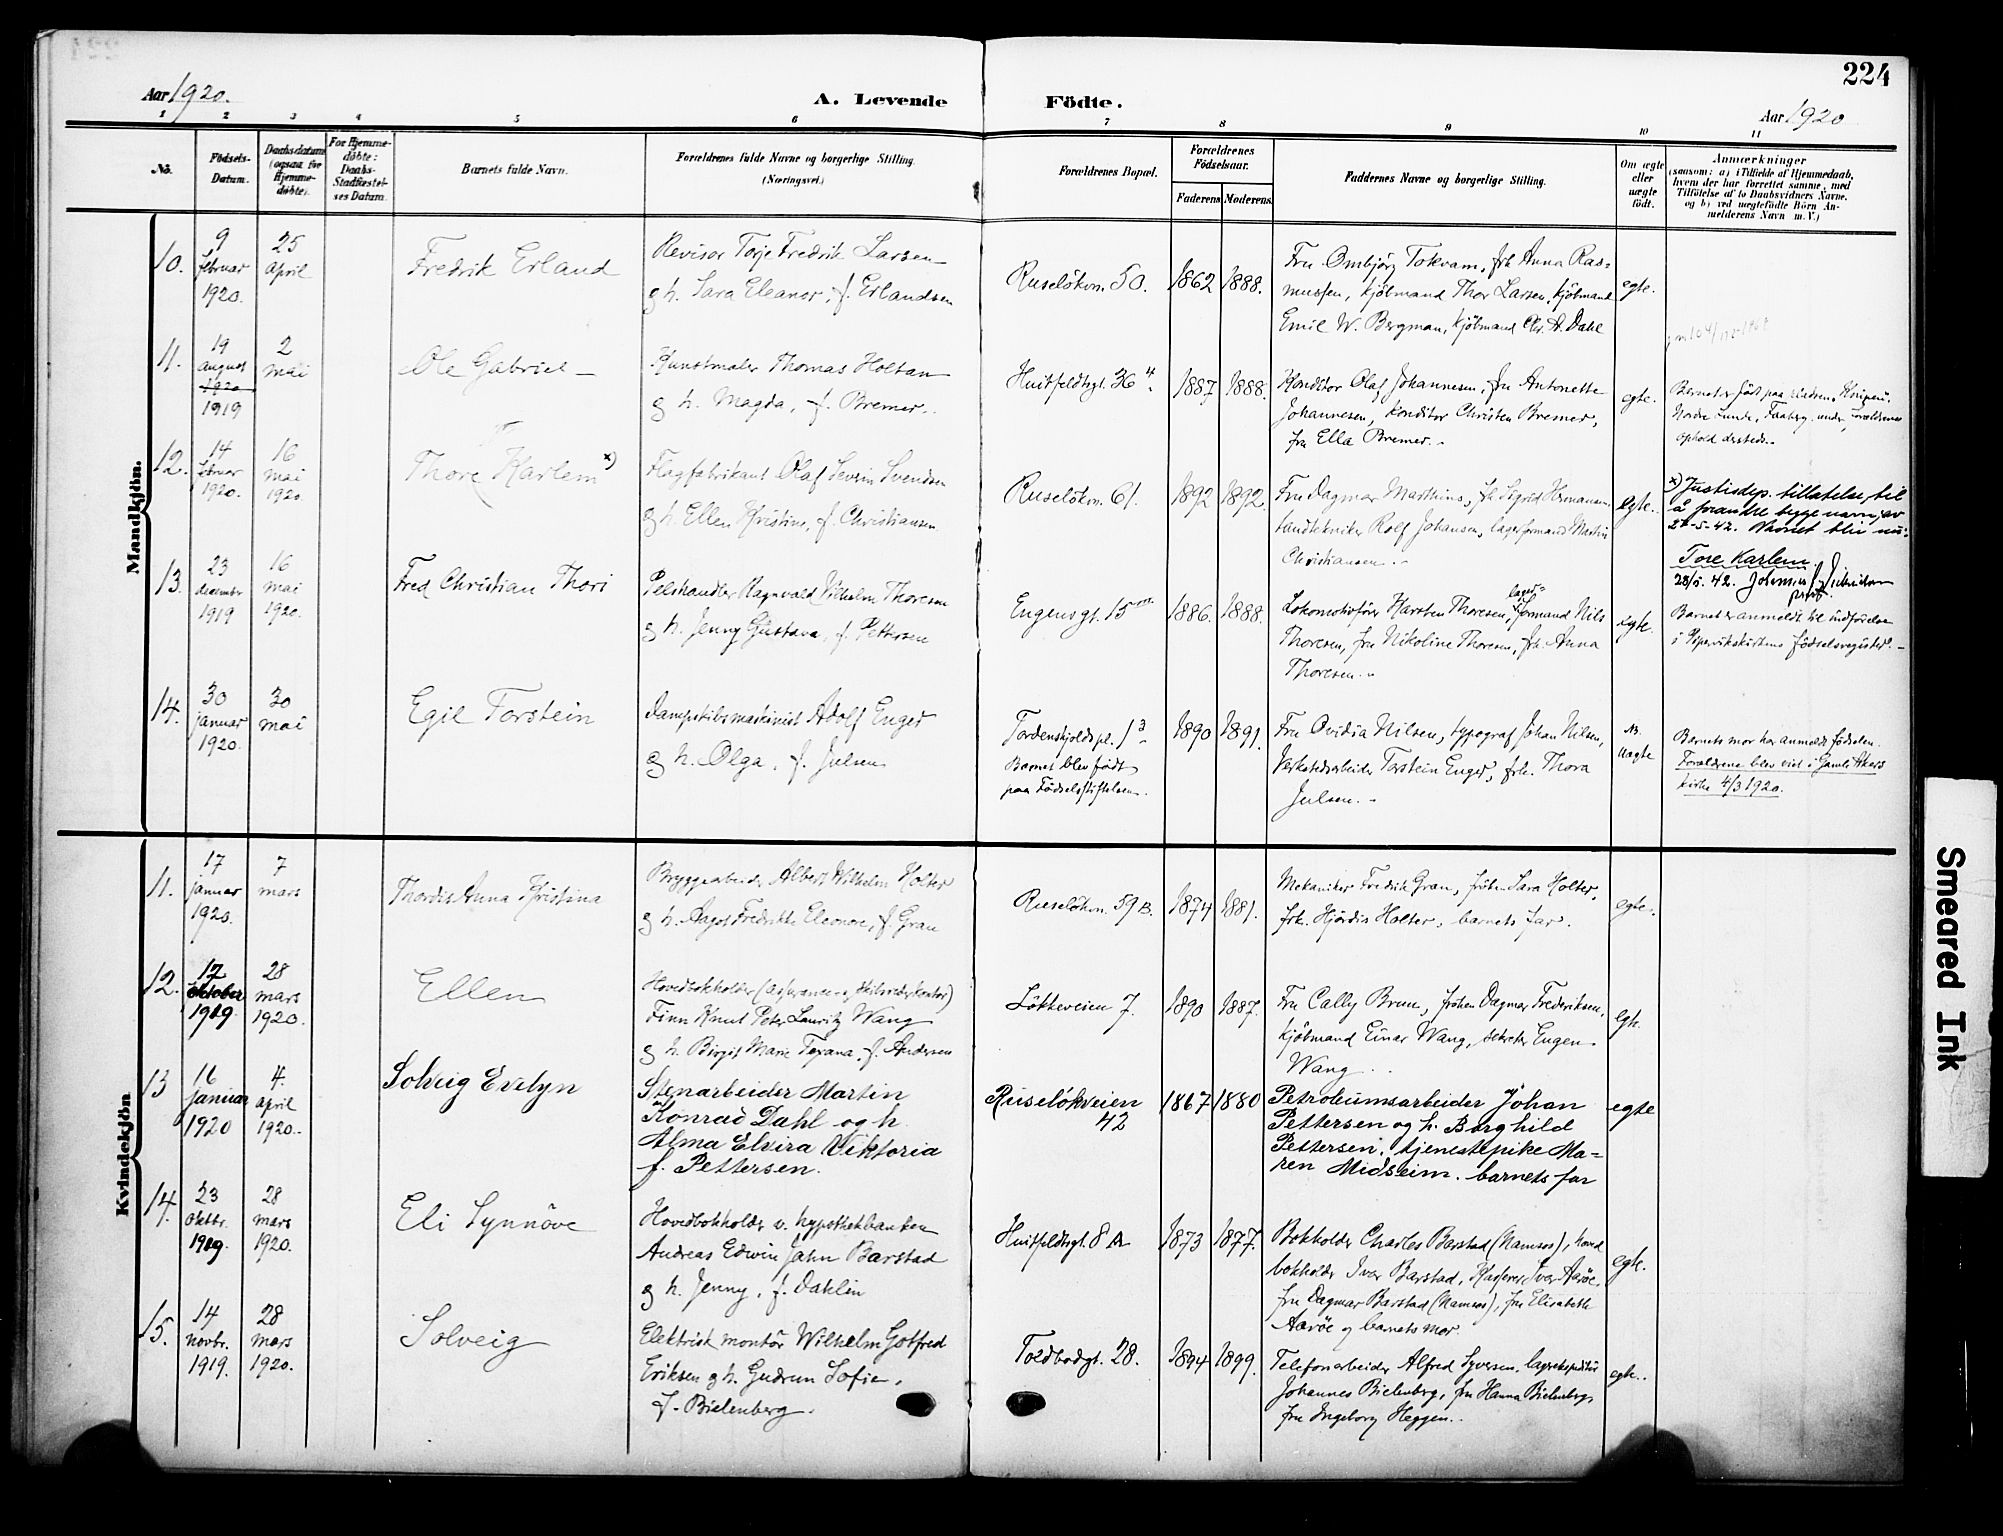 224
Aar 1920.
A. Levende Födte.
Aar 1920
1 2 3 4 5 6 7 8 9 10 11
No.
Födsels-Datum.
Daabsdatum (ogsaa for Hjemme-döbte).
For Hjemme-döbte: Daabs-Stadfæstel-ses Datum.
Barnets fulde Navn.
Forældrenes fulde Navne og borgerlige Stilling.
(Næringsvei.)
Forældrenes Bopæl.
Forældrenes Födselsaar.
Faderens Moderens
Faddernes Navne og borgerlige Stilling.
Om ægte eller uægte födt.
Anmærkninger
(saasom: a) i Tilfælde af Hjemmedaab,
hvem der har forrettet samme, med
Tilföielse af to Daabsvidners Navne,
og b) ved uægtefödte Börn An-
melderens Navn m. V.)
Mandkjön.
10.
9 februar 1920.
25 april
Fredrik Erland
Revisor Torje Fredrik Larsen
og h. Sara Eleanor, f. Erlandsen
Ruseløkvn. 50.
1862 1888.
Fru Ombjörg Tokvam, frk Anna Ras-
mussen, kjöbmand Thor Larsen, kjöbmand
Emil W. Bergman, kjöbmand Chr. A. Dahl
egte.
11.
19 august 1920 1919
2 mai
Ole Gabriel
Kunstmaler Thomas Holtan
og h. Magda, f. Bremer.
Huitfeldtsgt. 36 4.
1887 1888.
Konditor Olaf Johannesen, fru Antonette
Johannesen, konditor Christen Bremer,
fru Ella Bremer.
egte.
Barnet er født paa
Nordre Lunde, Faaberg under forældrenes
ophold dersteds.
12.
14 februar 1920.
16 mai 1920.
Thore (Karlem x)
Flagfabrikant Olaf Severin Svendsen
og h. Ellen Kristine, f. Christiansen
Ruseløkvn. 61.
1892 1892.
Fru Dagmar Mathins, frk Sigrid Hermansen
tandtekniker Rolf Johansen, lagerformand Martin
Christiansen.
egte.
x) Justisdep. tillatelse til
å forandre bygge navn, av
27-5-42. Navnet blir nu:
Tore Karlem.
28/5. 42.
13.
23 december 1919
16 mai 1920.
Fred Christian Thori
Pelshandler Ragnvald Vilhelm Thoresen
og h. Jenny Gustava, f. Pettersen
Eugensgt. 15
1886. 1888.
Lokomotivfører Karsten Thoresen, lager-formand Nils
Thoresen, fru Nikoline Thoresen, frk. Anna
Thoresen.
egte.
Barnet er anmeldt til indførelse
i Pipervikskirkens fødselsregister.
14.
30 januar 1920.
30 mai
Egil Torstein
Dampskibsmaskinist Adolf Enger
og h. Olga, f. Julsen
Tordenskjoldspl. 1 3
Barnet blev født
paa Fødselsstiftelsen.
1890 1891.
Fru Ovidia Nilsen, typograf Johan Nilsen,
Verkstedsarbeider Torstein Enger, frk. Thora
Julsen.
Uægte
Barnets mor har anmeldt fødselen.
Forældrene blev viet i Gamle Akers
kirke 4/3 1920.
Kvindekjön
11.
17 januar 1920.
7 mars
Thordis Anna Kristina
Bryggearbeider Albert Wilhelm Holter
og h. Dagot Fredrikke Eleonore, f. Gran
Ruseløkvn. 59 B.
1874 1881.
Mekaniker Fredrik Gran, frøken Sara Holter,
frk. Hjördis Holter, barnets far.
egte.
12.
17 oktober 1919.
28 mars 1920.
Ellen
Hovedbokholder (Assurance- og Skibsrederkontor)
Finn Knut Peter Lauritz Wang
og h. Birgit Marie Texana, f. Andersen
Løkkeveien 7.
1890 1887.
Fru Cally Brun, frøken Dagmar Frederiksen,
kjöbmand Einar Wang, sekretær Eugen
Wang.
egte.
13
16 januar 1920
4. april 1920.
Solveig Evelyn
Stenarbeider Martin
Konrad Dahl og h.
Alma Elvira Viktoria
f. Pettersen.
Ruseløkveien 42
1867 1880
Petroleumsarbeider Johan
Pettersen og h. Borghild
Pettersen, tjenestepike Ma-
ren Midseim. barnets far
egte
14.
23 oktbr. 1919.
28 mars 1920.
Eli Synnöve
Hovedbokholder v. hypothekbanken
Andreas Edwin Jahn Barstad
og h. Jenny, f. Dahlin
Huitfeldtsgt. 8 A
1873 1877.
Bokholder Charles Barstad (Namsos), hoved
bokholder Iver Barstad, Kasserer Iver Aarøe,
fru Dagmar Barstad (Namsos), fru Elisabeth
Aarøe og barnets mor.
egte.
15.
14 novbr. 1919.
28 mars 1920.
Solveig
Elektrisk montör Wilhelm Gotfred
Eriksen og h. Gudrun Sofie,
f. Bielenberg.
Toldbodgt. 28.
1894 1899.
Telefonarbeider Alfred Syversen, lagerekspeditör
Johannes Bielenberg, fru Hanna Bielenberg,
fru Ingeborg Heggen.
egte.
Smeared Ink